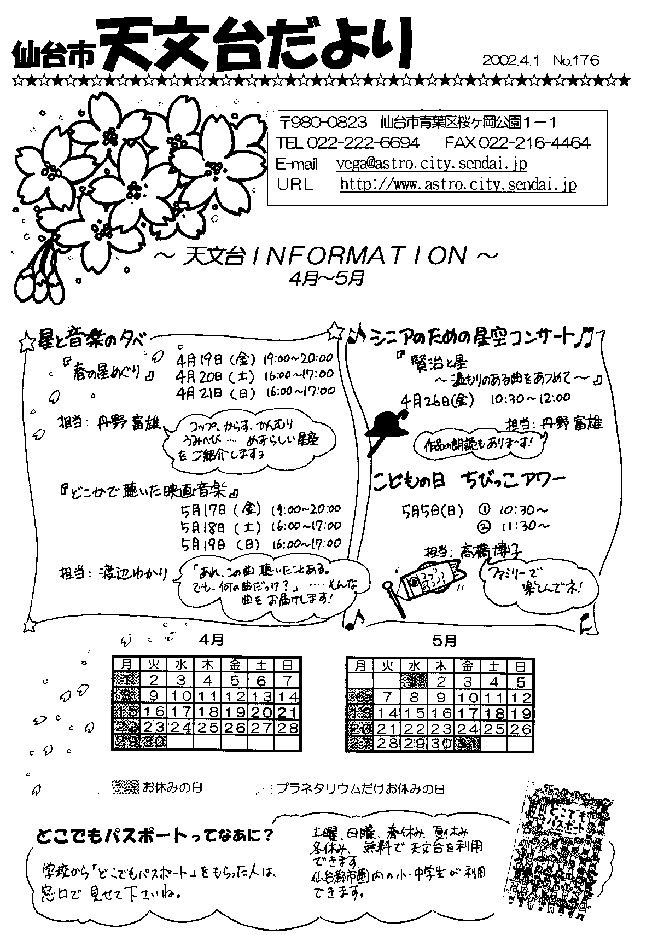 仙台市 天文台だより 2002.4.1 No.176
〒980-0823 仙台市青葉区桜ヶ岡公園1-1
TEL 022-222-6694 FAX 022-216-4464
E-mail vega@astro.city.sendai.jp
URL http://www.astro.city.sendai.jp
～ 天文台INFORMATION ～
4月～5月
星と音楽の夕べ
『春の星めぐり』
4月19日(金) 19:00~20:00
4月20日(土) 16:00~17:00
4月21日(日) 16:00~17:00
担当: 丹野富雄
コップ、からす、かんむり
うみへび… めずらしい星座
をご紹介します♪
『どこかで聴いた映画音楽』
5月17日(金) 19:00~20:00
5月18日(土) 16:00~17:00
5月19日(日) 16:00~17:00
担当: 渡辺ゆかり
「あれ、この曲聴いたことある。
でも、何の曲だっけ?」……そんな
曲をお届けします!
♪シニアのための星空コンサート♫
『賢治と星
～温もりのある曲をあつめて～』
4月26日(金) 10:30~12:00
担当: 丹野富雄
作品の朗読もありま~す!
こどもの日 ちびっこアワー
5月5日(日) ① 10:30~
② 11:30~
担当: 高橋博子
ファミリーで
楽しんでネ!
4月
月 火 水 木 金 土 日
1 2 3 4 5 6 7
8 9 10 11 12 13 14
15 16 17 18 19 20 21
22 23 24 25 26 27 28
29 30
5月
月 火 水 木 金 土 日
1 2 3 4 5
6 7 8 9 10 11 12
13 14 15 16 17 18 19
20 21 22 23 24 25 26
27 28 29 30 31
お休みの日 プラネタリウムだけお休みの日
どこでもパスポートってなあに?
学校から「どこでもパスポート」をもらった人は、
窓口で見せて下さいね。
土曜、日曜、春休み、夏休み
冬休み、無料で天文台を利用
できます。
仙台都市圏内の小・中学生が利用
できます。
どこでも
パスポート